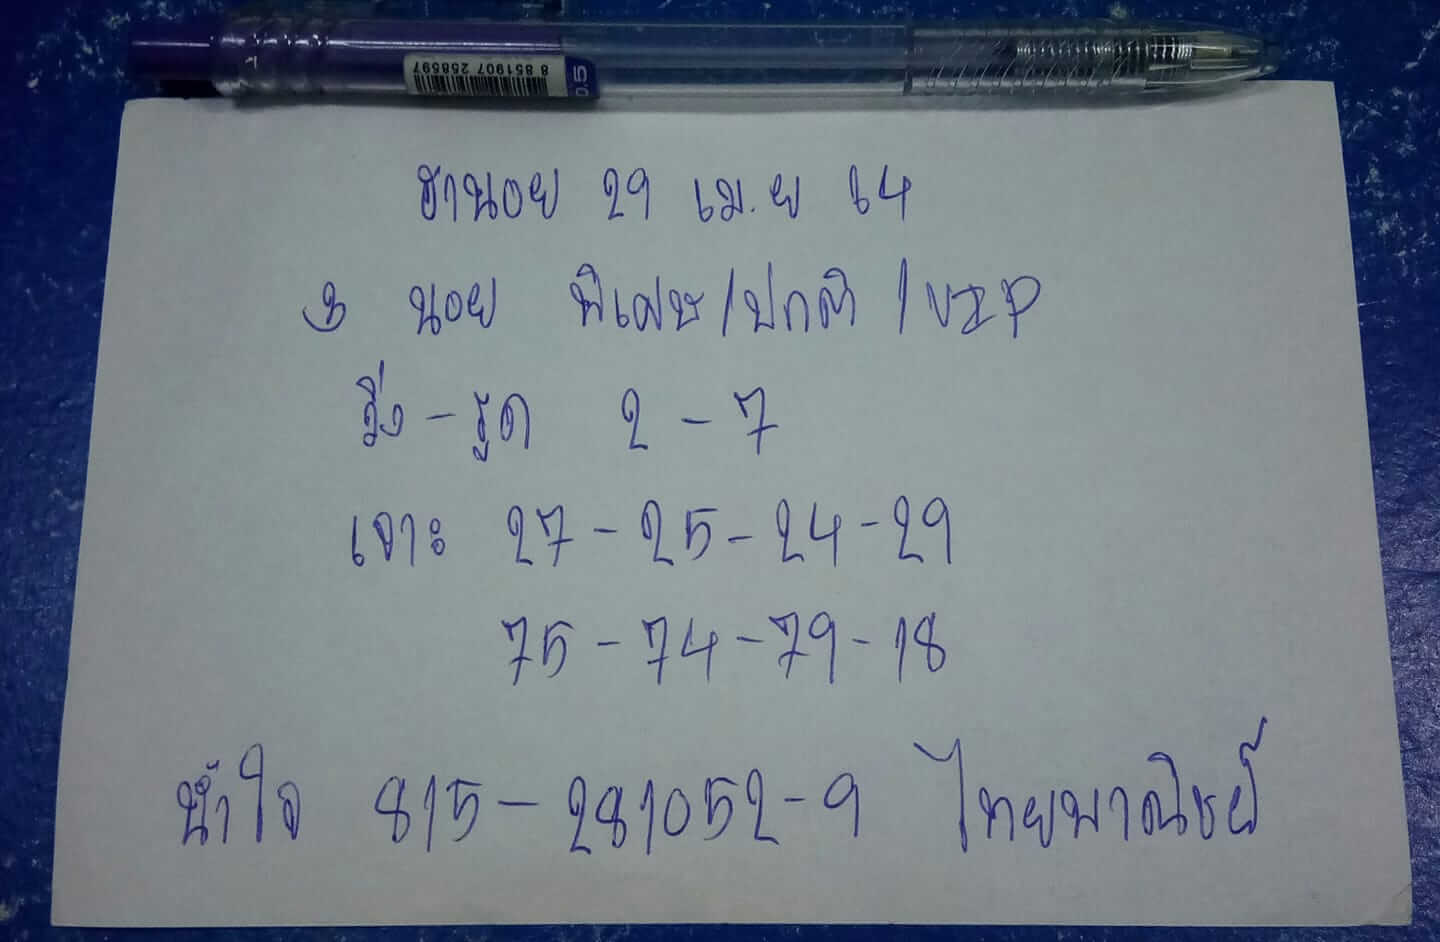 8 851907 258597
0.5
ฮานอย 29 เม.ย 64
3 นอย พิเศษ/ปกติ/VIP
วิ่ง - รูด 2 - 7
เจาะ 27 - 25 - 24 - 29
75 - 74 - 79 - 18
น้ำใจ 815 - 281052 - 9 ไทยพาณิชย์